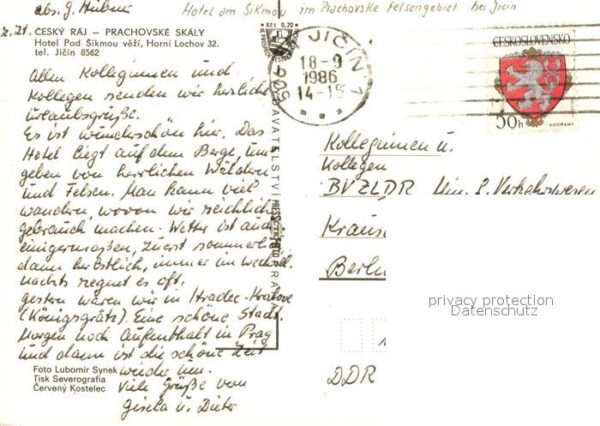 abs. G. Hübner
Hotel am Sikmou im Prachovske Felsengebiet bei Jicin
Z. 21. ČESKÝ RÁJ – PRACHOVSKÉ SKÁLY
Hotel Pod Šikmou věží, Horní Lochov 32.
tel. Jičín 8562
Allen Kolleginnen und
Kollegen senden wir herzliche
Urlaubsgrüße.
Es ist wunderschön hier. Das
Hotel liegt auf dem Berge, um-
geben von herrlichen Wäldern
und Felsen. Man kann viel
wandern, wovon wir reichlich
gebrauch machen. Wetter ist auch
einigermaßen, zuerst sommerlich
dann herbstlich, immer im Wechsel.
nachts regnet es oft.
gestern waren wir in Hradec-Kralove
(Königsgrätz). Eine schöne Stadt.
Morgen noch Aufenthalt in Prag
und dann ist die schöne Zeit
wieder um.
Viele Grüße von
Gisela u. Dieter
Foto Lubomír Synek
Tisk Severografia
Červený Kostelec
Kčs 0,20
JIČÍN 1
18-9
1986
14-15
ČESKOSLOVENSKO
50h
VODŇANY
Kolleginnen u.
Kollegen
BVZLDR Min. f. Verkehrswesen
Kraus
Berlin
DDR
privacy protection
Datenschutz